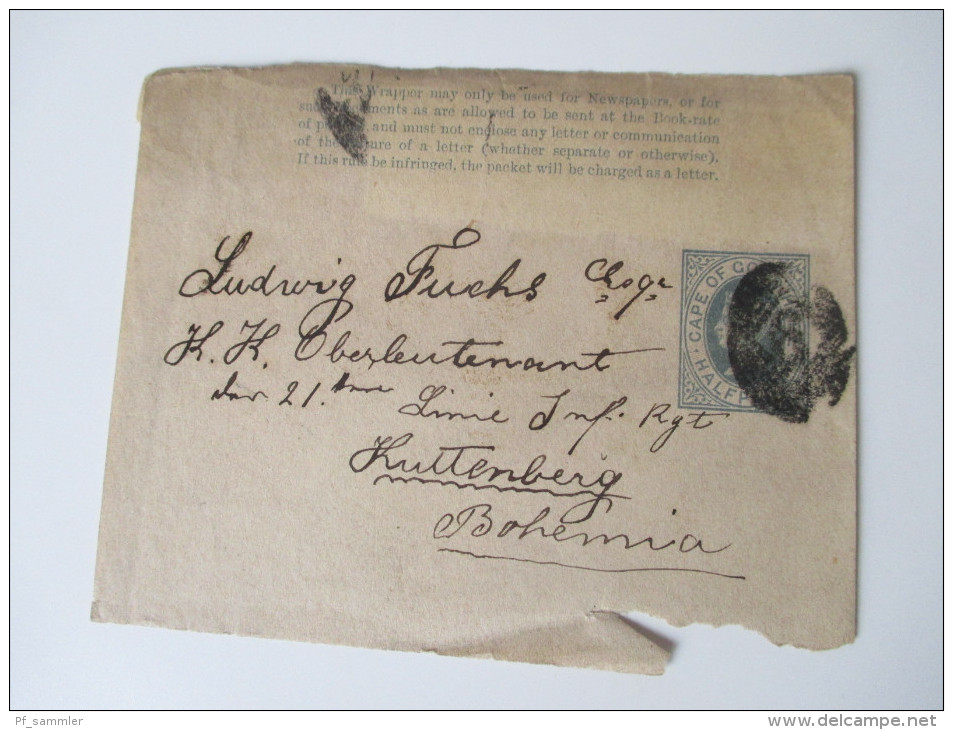 This Wrapper may only be used for Newspapers, or for
such documents as are allowed to be sent at the Book-rate
of postage, and must not enclose any letter or communication
of the nature of a letter (whether separate or otherwise).
If this rule be infringed, the packet will be charged as a letter.
CAPE OF GOO
HALF P
Ludwig Fuchs Esqr
K. K. Oberleutenant
der 21. Linie Inf. Rgt
Kuttenberg
Bohemia
Pf_sammler
www.delcampe.net